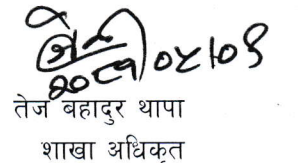 २०८१।०५।०९
तेज बहादुर थापा
शाखा अधिकृत